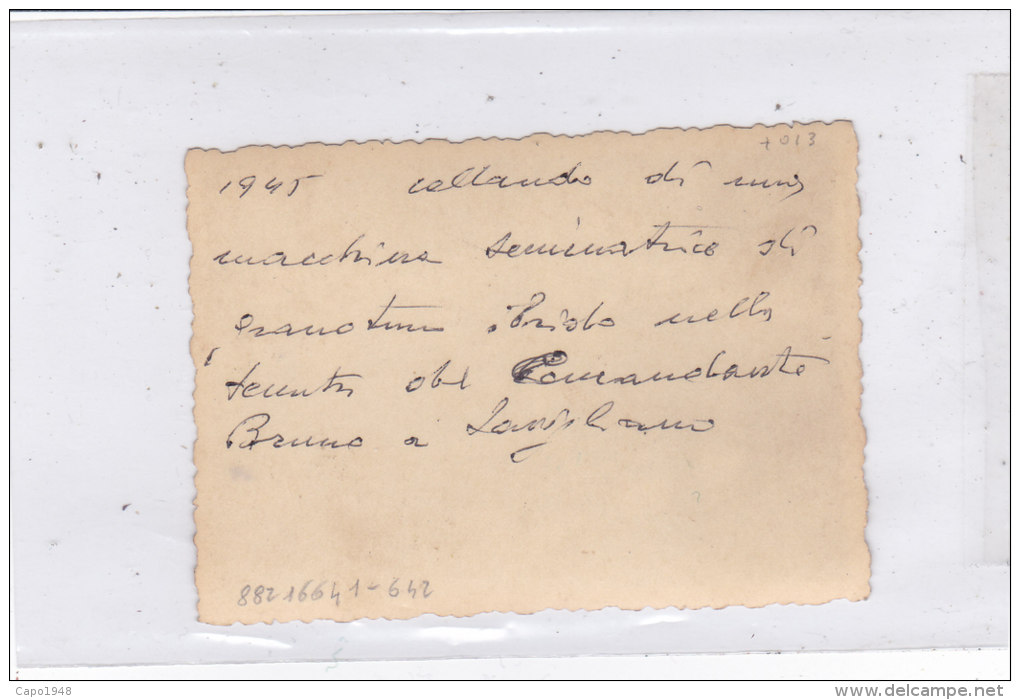 +013
1945 collaudo di una
macchina seminatrice di
granoturco ibrido nella
tenuta del Comandante
Bruno a Savigliano
88216641-642
Capo1948
www.delcampe.net